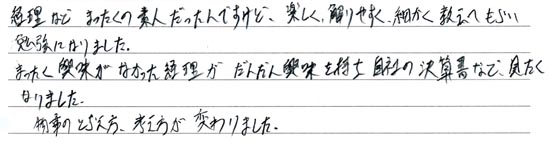 経理など まったくの素人だったんですけど、楽しく、解りやすく、細かく教えてもらい
勉強になりました。
まったく興味がなかった経理が だんだん興味を持ち 自社の決算書など、見たく
なりました。
物事のとらえ方、考え方が 変わりました。